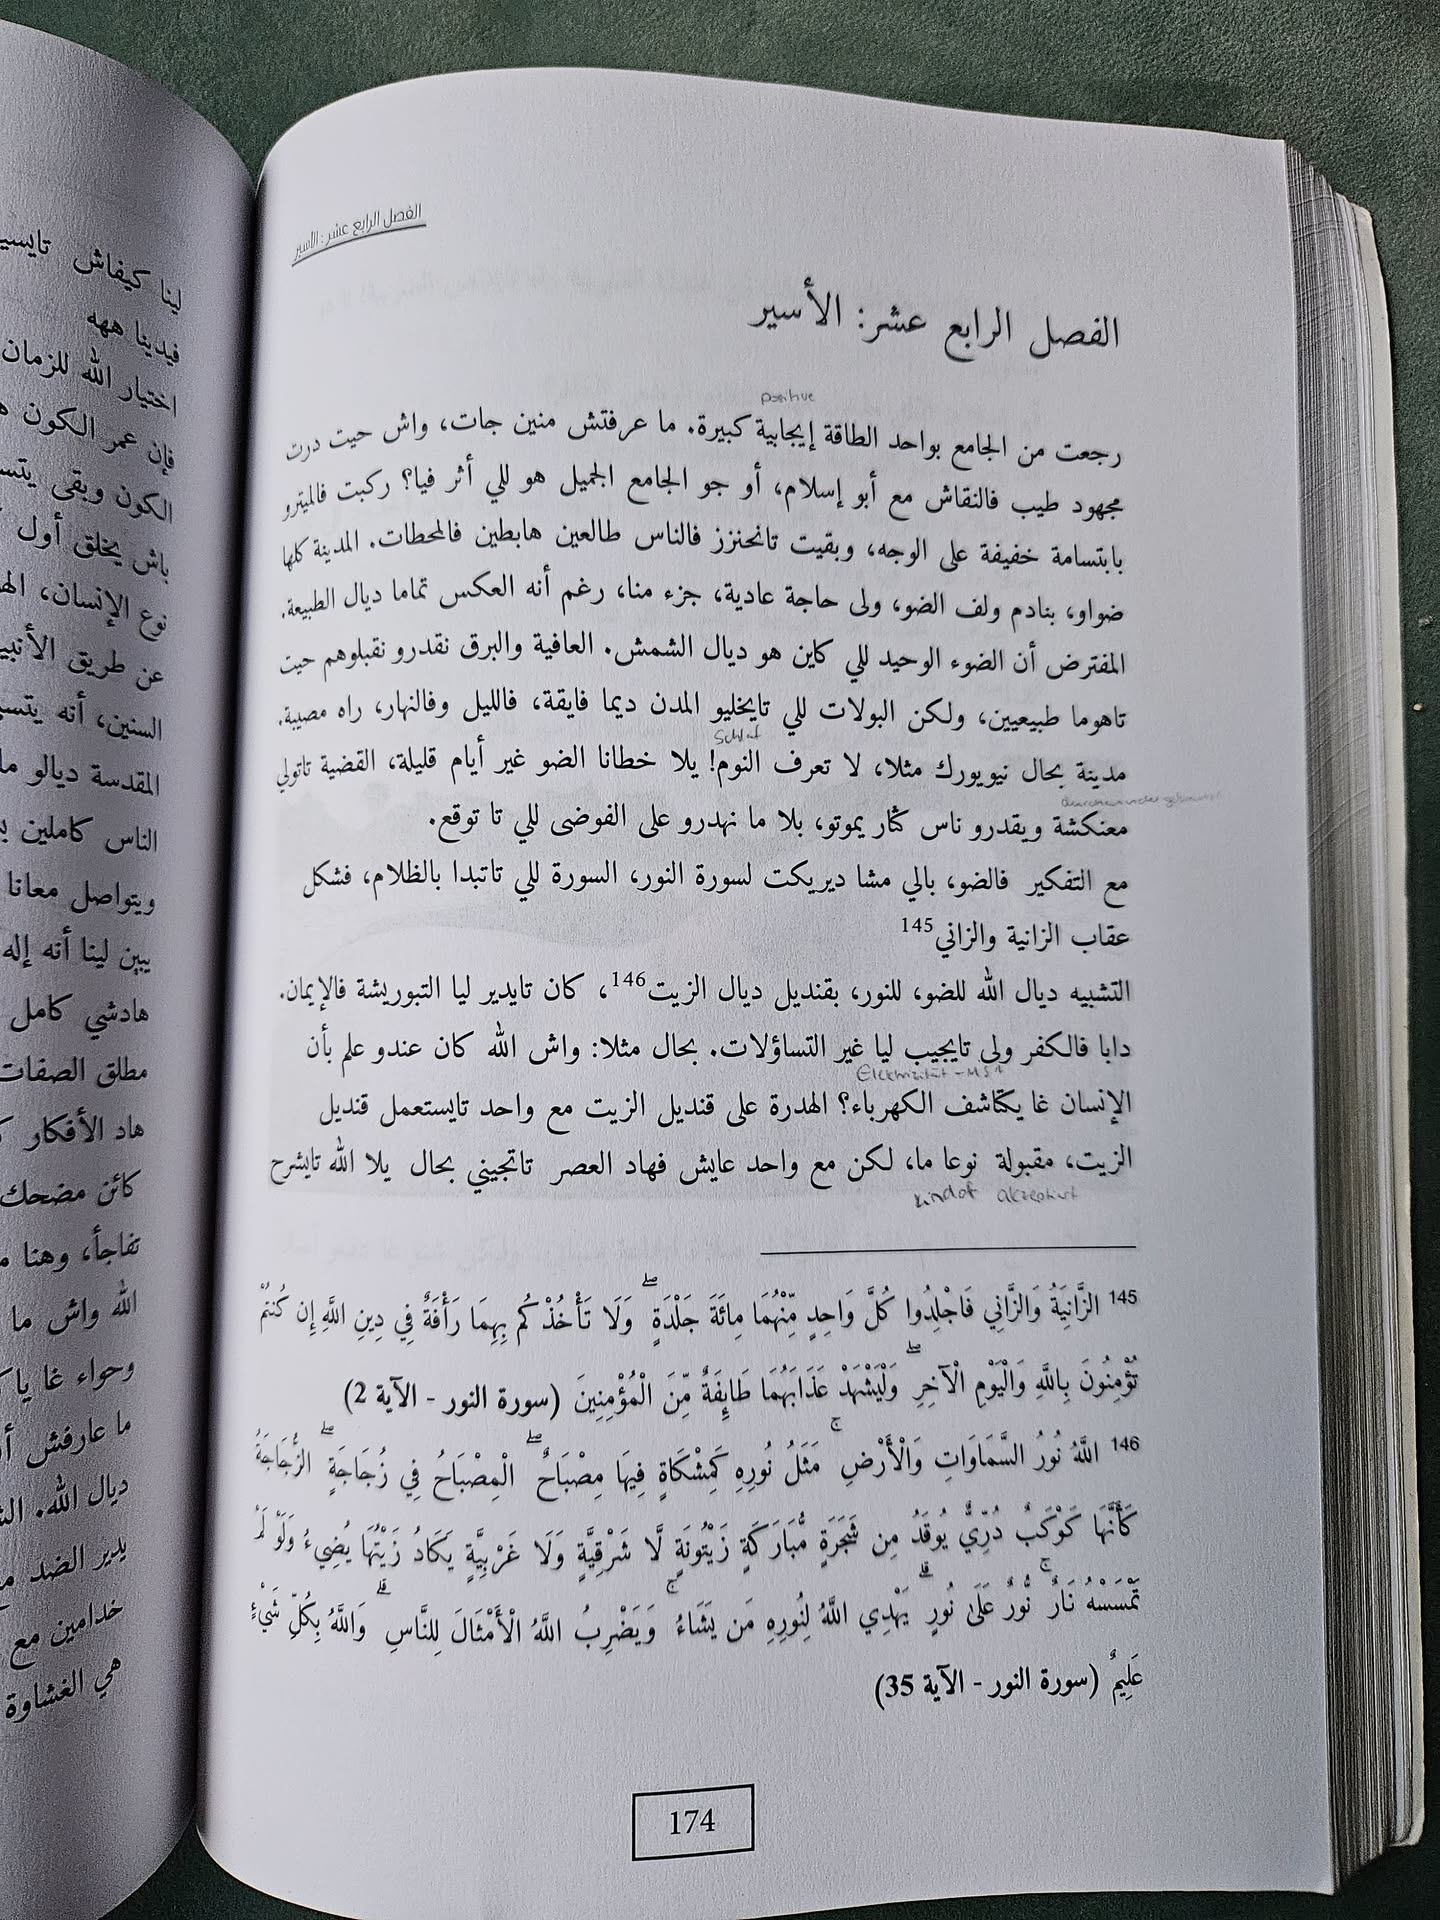 الفصل الرابع عشر: الأسير
الفصل الرابع عشر: الأسير
positive
رجعت من الجامع بواحد الطاقة إيجابية كبيرة. ما عرفتش منين جات، واش حيت درت
مجهود طيب فالنقاش مع أبو إسلام، أو جو الجامع الجميل هو للي أثر فيا؟ ركبت فالميترو
بابتسامة خفيفة على الوجه، وبقيت تانحنزز فالناس طالعين هابطين فالمحطات. المدينة كلها
ضواو، بنادم ولف الضو، ولى حاجة عادية، جزء منا، رغم أنه العكس تماما ديال الطبيعة.
المفترض أن الضوء الوحيد للي كاين هو ديال الشمش. العافية والبرق نقدرو نقبلوهم حيت
تاهوما طبيعيين، ولكن البولات للي تايخليو المدن ديما فايقة، فالليل وفالنهار، راه مصيبة.
Schlaf
مدينة بحال نيويورك مثلا، لا تعرف النوم! يلا خطانا الضو غير أيام قليلة، القضية تاتولي
معنكشة ويقدرو ناس كثار يموتو، بلا ما نهدرو على الفوضى للي تا توقع.
مع التفكير فالضو، بالي مشا ديريكت لسورة النور، السورة للي تاتبدا بالظلام، فشكل
عقاب الزانية والزاني145
التشبيه ديال الله للضو، للنور، بقنديل ديال الزيت146، كان تايدير ليا التبوريشة فالإيمان.
دابا فالكفر ولى تايجيب ليا غير التساؤلات. بحال مثلا: واش الله كان عندو علم بأن
Elektrizität
الإنسان غا يكتاشف الكهرباء؟ الهدرة على قنديل الزيت مع واحد تايستعمل قنديل
الزيت، مقبولة نوعا ما، لكن مع واحد عايش فهاد العصر تاتجيني بحال يلا الله تايشرح
kindof akzeptiert
145 الزَّانِيَةُ وَالزَّانِي فَاجْلِدُوا كُلَّ وَاحِدٍ مِّنْهُمَا مِائَةَ جَلْدَةٍ ۖ وَلَا تَأْخُذْكُم بِهِمَا رَأْفَةٌ فِي دِينِ اللَّهِ إِن كُنتُمْ
تُؤْمِنُونَ بِاللَّهِ وَالْيَوْمِ الْآخِرِ ۖ وَلْيَشْهَدْ عَذَابَهُمَا طَائِفَةٌ مِّنَ الْمُؤْمِنِينَ (سورة النور - الآية 2)
146 اللَّهُ نُورُ السَّمَاوَاتِ وَالْأَرْضِ ۚ مَثَلُ نُورِهِ كَمِشْكَاةٍ فِيهَا مِصْبَاحٌ ۖ الْمِصْبَاحُ فِي زُجَاجَةٍ ۖ الزُّجَاجَةُ
كَأَنَّهَا كَوْكَبٌ دُرِّيٌّ يُوقَدُ مِن شَجَرَةٍ مُّبَارَكَةٍ زَيْتُونَةٍ لَّا شَرْقِيَّةٍ وَلَا غَرْبِيَّةٍ يَكَادُ زَيْتُهَا يُضِيءُ وَلَوْ لَمْ
تَمْسَسْهُ نَارٌ ۚ نُّورٌ عَلَىٰ نُورٍ ۗ يَهْدِي اللَّهُ لِنُورِهِ مَن يَشَاءُ ۚ وَيَضْرِبُ اللَّهُ الْأَمْثَالَ لِلنَّاسِ ۗ وَاللَّهُ بِكُلِّ شَيْءٍ
عَلِيمٌ (سورة النور - الآية 35)
174
لينا كيفاش
فيدينا ههه
اختيار الله للزمان
فإن عمر الكون
الكون وبقى
باش يخلق أول
نوع الإنسان،
عن طريق
السنين، أنه
المقدسة ديالو
الناس كاملين
ويتواصل معانا
يبين لينا أنه إله
هادشي كامل
مطلق الصفات
هاد الأفكار
كائن مضحك
تفاجأ، وهنا
الله واش ما
وحواء غا
ما عارفش
ديال الله.
يدير الضد
خدامين مع
هي الغشاوة